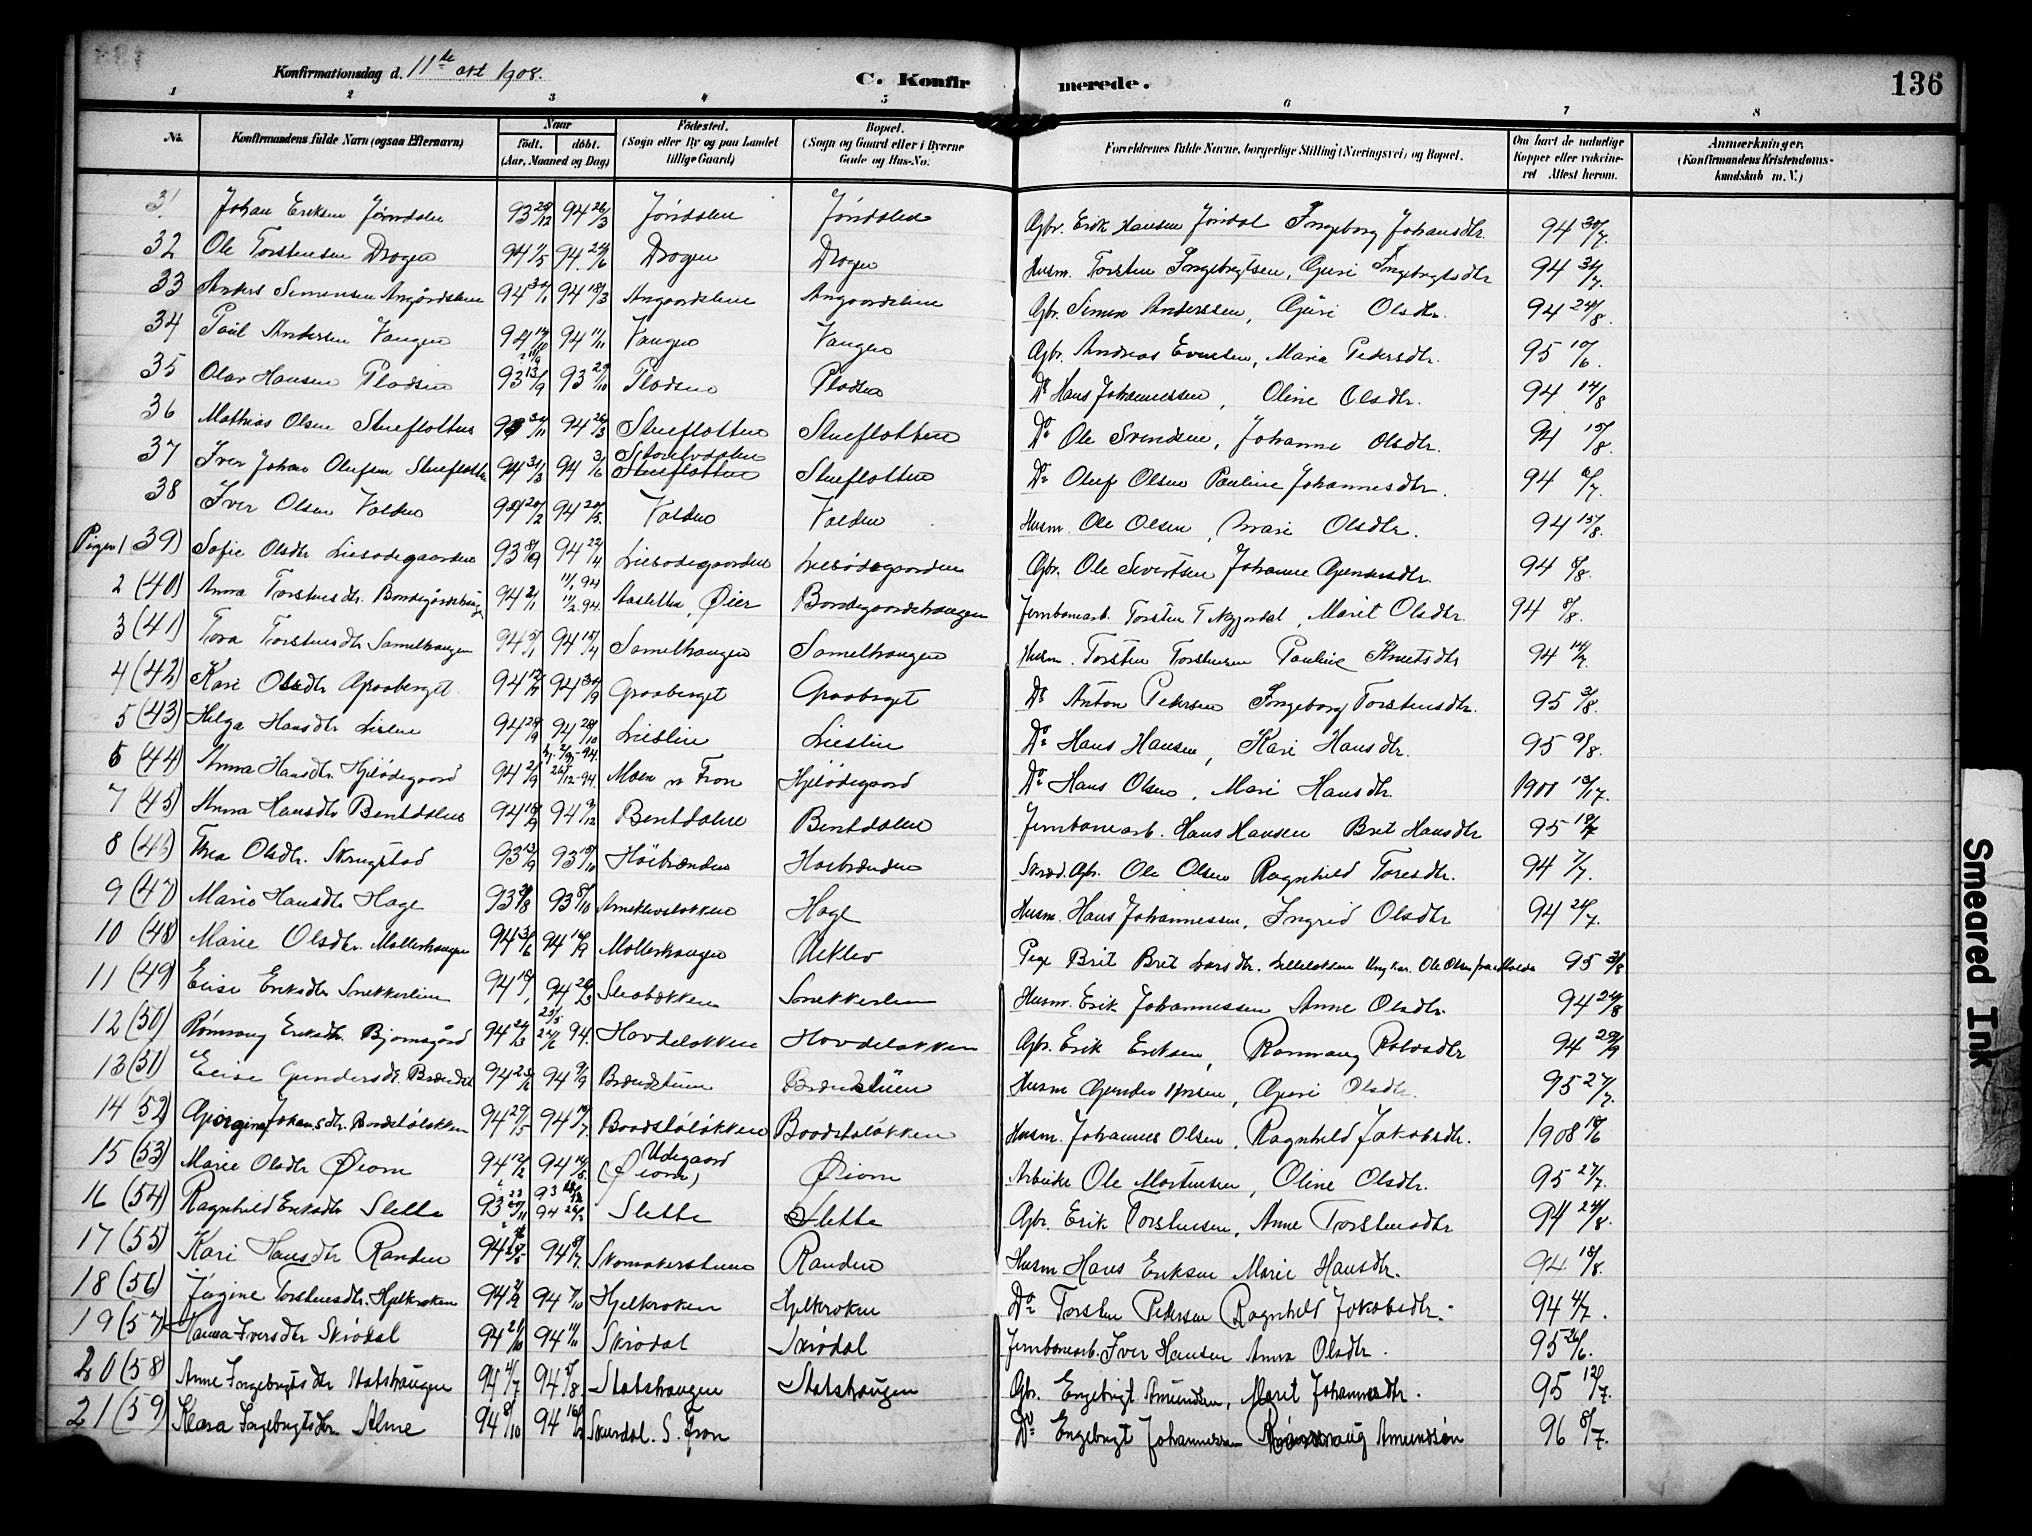 Konfirmationsdag d. 11te okt 1908.
C. Konfir merede.
136
1 2 3 4 5 6 7 8
No.
Konfirmandens fulde Navn (ogsaa Efternavn)
Naar
født. døbt.
(Aar, Maaned og Dag)
Fødested.
(Sogn eller By og paa Landet tillige Gaard)
Bopæl.
(Sogn og Gaard eller i Byerne Gade og Hus-No.
Forældrenes fulde Navne, borgerlige Stilling (Næringsvei) og Bopæl.
Om havt de naturlige Kopper eller vakcineret Attest herom.
Anmærkninger.
(Konfirmandens Kristendomskundskab m. V.)
31 Johan Eriksen Jøndalen 93 29/12 94 26/3 Jöndalen Jöndalen Gbr. Erik Hansen Jöndal Ingeborg Johansdtr. 94 30/7.
32 Ole Torstensen Drogen 94 1/5 94. 24/6 Drogen Drogen Husm. Torsten Ingebrigtsen, Guri Ingebrigtsdtr 94 31/7.
33 Anders Simensen Angårdslien 94 94 18/3 Angaardslien Angaardslien Gbr. Simen Anderssen, Guri Olsdtr. 94 24/8.
34 Paul Andersen Vangen 94 94 11/11 Vangen Vangen Gbr. Andreas Evensen, Maria Pedersdtr. 95 10/6.
35 Olav Hansen Pladsen 93 13/9 93 29/10 Pladsen Pladsen Do Hans Johannessen, Oline Olsdtr. 94 14/8
36 Mathias Olsen Stueflotten 94 26/3 Stueflotten Stueflotten Do Ole Svendsen, Johanne Olsdtr. 94 15/8.
37 Iver Johan Olufsen Stueflotten 94 31/3 94 3/6 Stueflotten Stueflotten Do Oluf Olsen Pauline Johannesdtr. 94 6/7.
38 Iver Olsen Volden 94 20/2 94 20/5. Volden Volden Husm. Ole Olsen, Mari Olsdtr. 94 15/8.
Piger 1 (39) Sofie Olsdtr Liesødegaarden 93 8/9 94 22/4 Liesødegaarden Liesødegaarden Gbr. Ole Sivertsen Johanne Gundersdtr. 94 8/8.
2 (40) Anna Torstensdtr. Bondegårdshaugen 94 2/1 11/2 94. Øier Bondegaardshaugen Jernbanearb. Torsten T. Marit Olsdtr. 94 8/8.
3 (41) Tora Torstensdtr Samelhaugen 94 5/1 94 15/4 Samelhaugen Samelhaugen Husm. Torsten Torstensen Pauline Knutsdtr 94 14/7.
4 (42) Kari Olsdtr Graaberget 94 94 30/9 Graaberget Graaberget Do Anton Pedersen Ingeborg Torstensdtr. 95 3/8.
5 (43) Helga Hansdtr Lislien 94 29/9 94 28/10 Lieslien Lieslien Do Hans Hansen, Kari Hansdtr. 95 9/8.
6 (44) Anna Hansdtr. Hjelødegaard 94 2/9 26/12-94. Moen n Fron Hjelødegaard Do Hans Olsen, Mari Hansdtr.
7 (45) Anna Hansdtr Bentdalen 94 18/9 94 9/12 Bentdalen Bentdalen Jernbanearb. Hans Hansen Brit Hansdtr 95
8 (46) Thea Olsdtr. Skrugstad 93 13/9 93 15/10 Höibrænden Höibrænden Skræd. Gbr. Ole Olsen Ragnhild Toresdtr. 94 7/7.
9 (47) Marie Hansdtr Hage 93 93 8/10 Hage Husm. Hans Johannessen, Ingrid Olsdtr 94 24/7.
10 (48) Marie Olsdtr. Mollerhaugen 94 3/6 94 16/9 Mollerhaugen Ueklev Pige Brit Larsdtr. Ungkar. Ole Olsen 95 3/8
11 (49) Elise Eriksdtr Snekkerlien 94 94 Snekkerlien Husm. Erik Johannessen Anne Olsdtr. 94 24/8
12 (50) Rønnaug Eriksdtr. Bjornsgård 94 94. Hovdeløkken Hovdeløkken Gbr. Erik Eriksen, Rønnaug 94 29/9
13 (51) Elise Gundersdtr. 94 94 9/9 Brændstuen Brændstuen Husm Gunder Guri Olsdtr. 95 27/7.
14 (52) Georgina Johansdtr. Baadstøløkken 94 29/5 94 19/7 Baadstøløkken Baadstøløkken Husm. Johannes Olsen, Ragnhild Jakobsdtr. 1908 18/6
15 (53) Marie Olsdtr Øiom 94 12/2 94 14/5. Ødegaard (Øiom) Øiom Arbeider Ole Mortensen, Oline Olsdtr. 95 27/7.
16 (54) Ragnhild Eriksdtr Slette 93 94 26/3 Slette Slette Gbr. Erik Torstensen, Anne Torstensdtr 94 24/8.
17 (55) Kari Hansdtr Randen 94 94 8/7. Skomakerstuen Randen Husm Hans Eriksen Marie Hansdtr. 94 18/8.
18 (56) Jørgine Torstensdtr. Hjelkroken 94 2/9 94 7/10 Hjelkroken Hjelkroken Do Torsten Pedersen Ragnhild Jakobsdtr. 94 4/7.
19 (57) Hanna Iversdtr Skiødal 94 21/10 94 11/11 Skiødal Skiødal Jernbanearb. Iver Hansen Anna Olsdtr. 95 26/6.
20 (58) Anne Ingebrigtsdtr Statshaugen 94 4/7 94 5/8 Statshaugen Statshaugen Gbr. Engebrigt Amundsen, Marit Johannesdtr. 95 12/7.
21 (59) Klara Ingebrigtsdtr. Alme 94 8/10 94 Skurdal. S. Fron Do Engebrigt Johannessen Rønnaug Amundsøn 96 8/7.
Smeared Ink